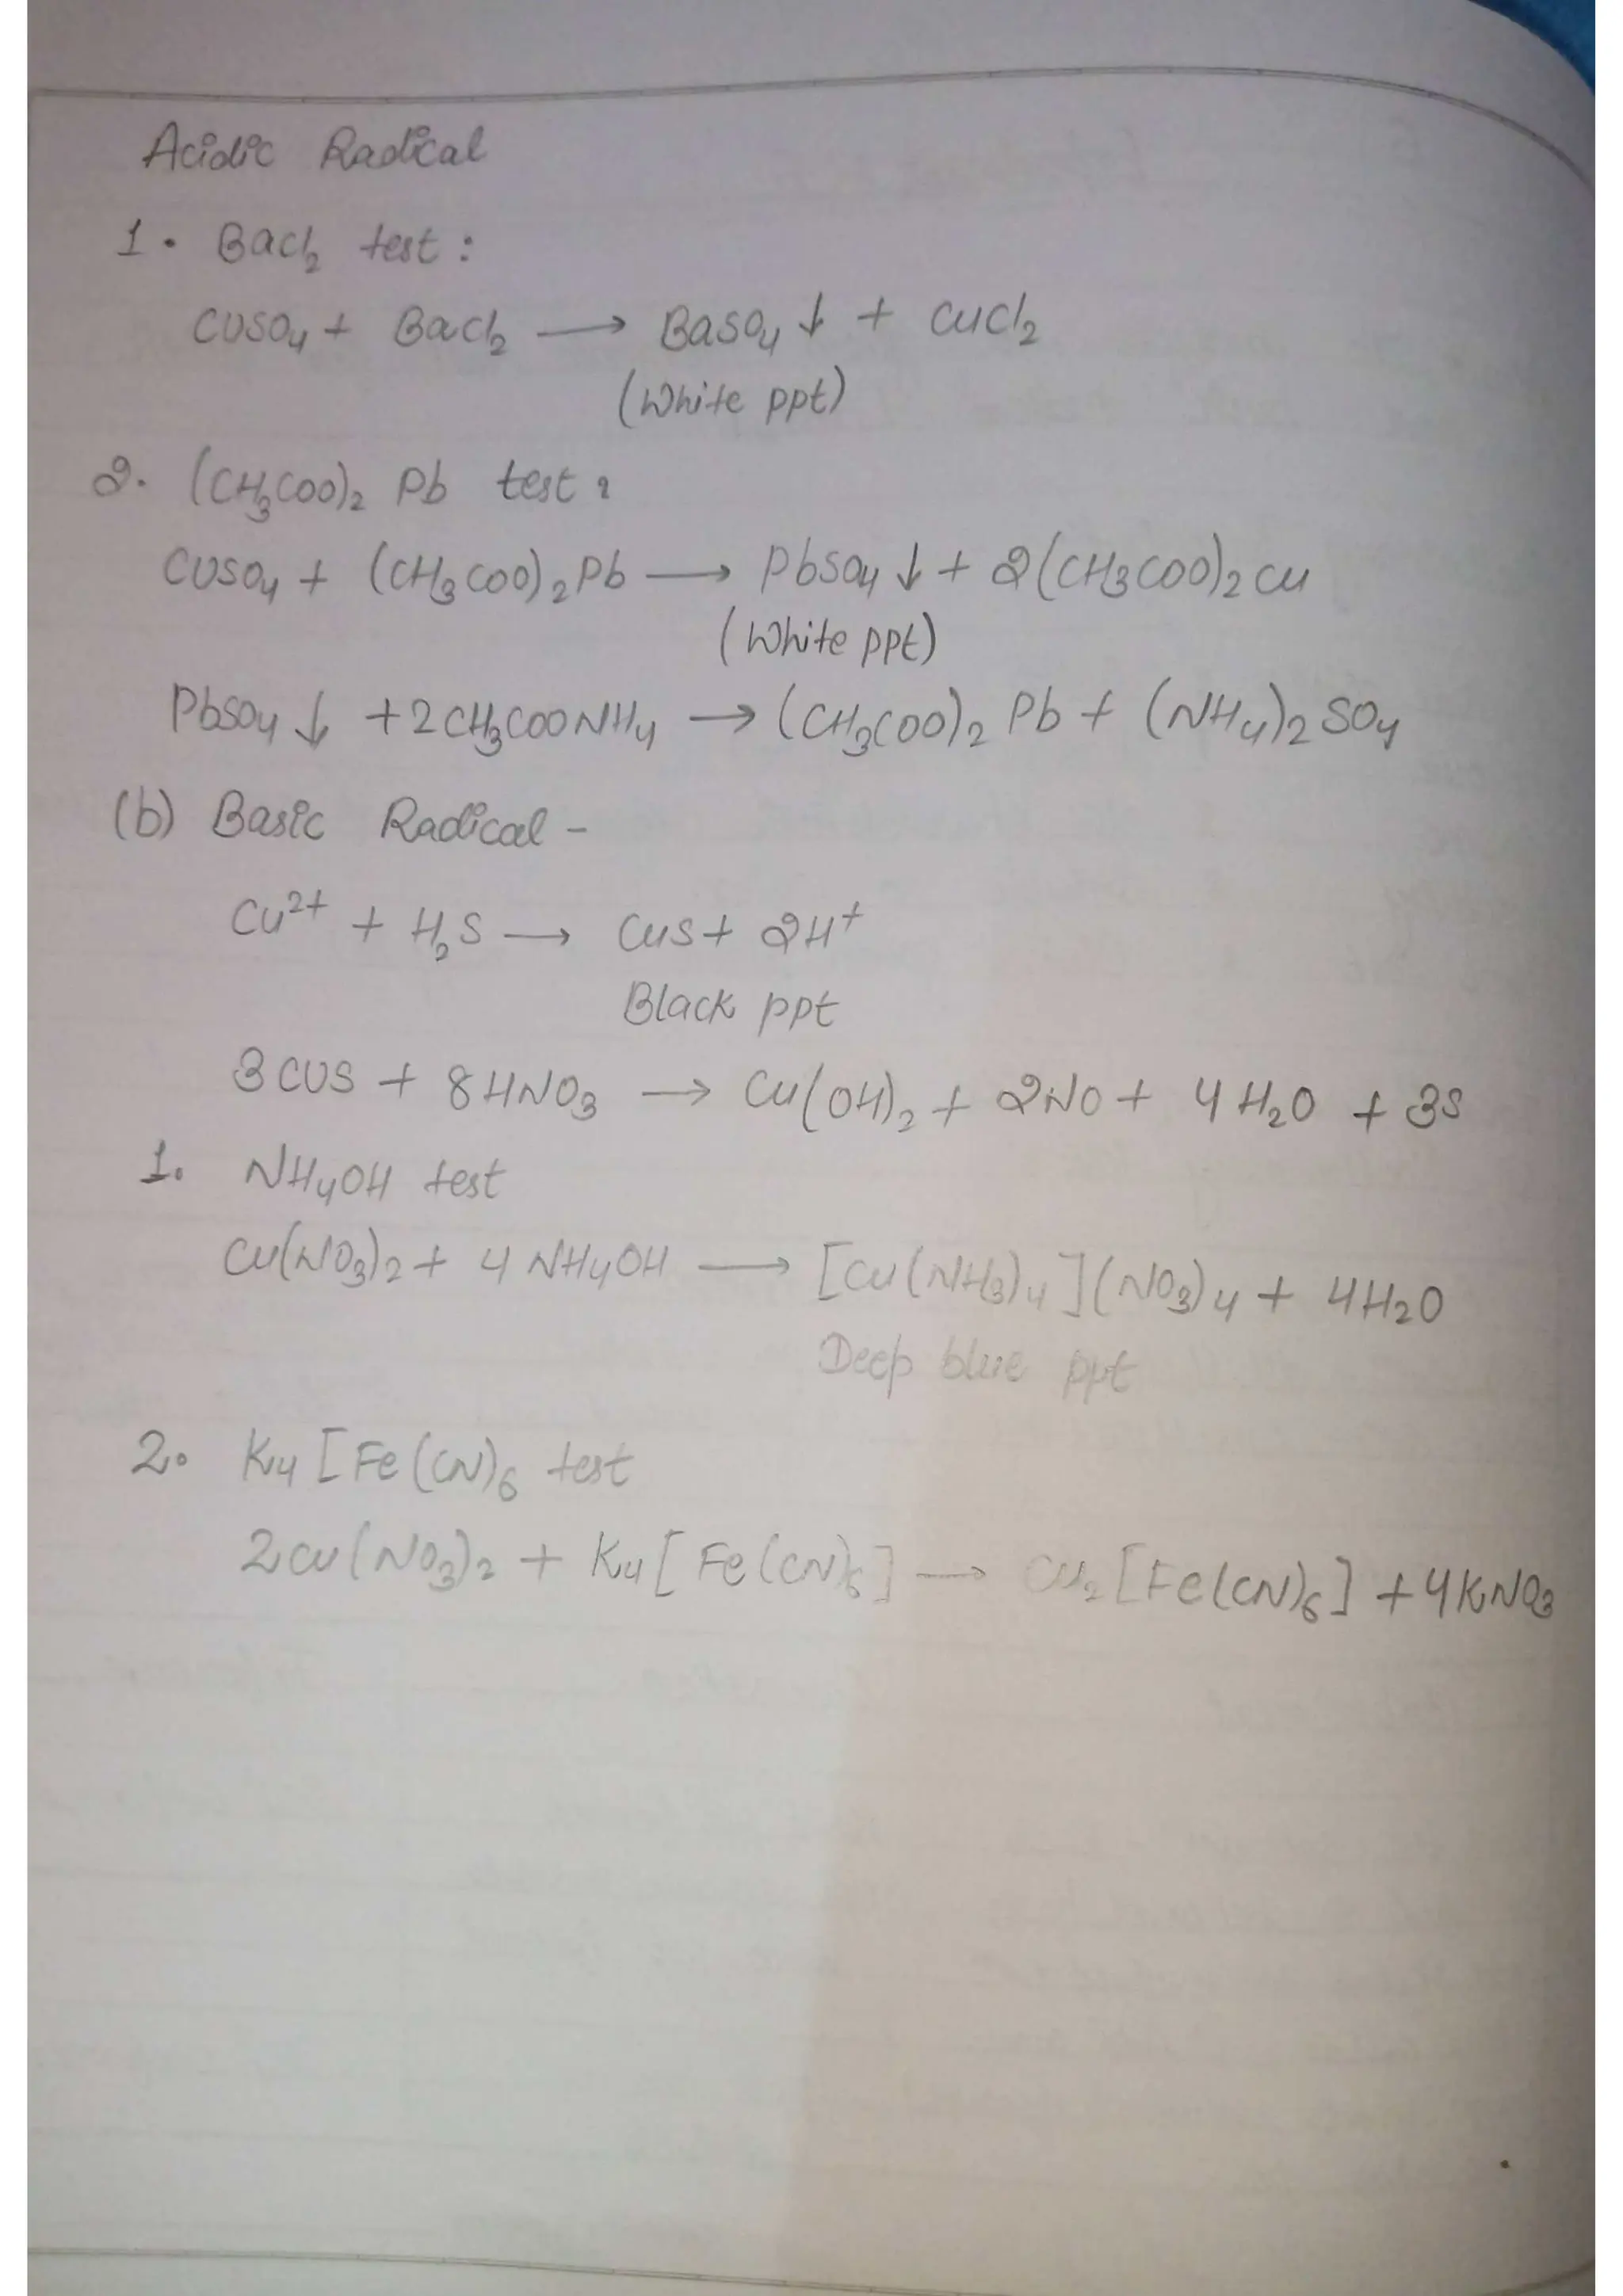 Acidic Radical
1. BaCl2 test:
CuSO4 + BaCl2 ⟶ BaSO4 ↓ + CuCl2
(White ppt)
2. (CH3COO)2 Pb test:
CuSO4 + (CH3COO)2Pb ⟶ PbSO4 ↓ + 2(CH3COO)2Cu
(White ppt)
PbSO4 ↓ + 2CH3COONH4 ⟶ (CH3COO)2 Pb + (NH4)2SO4
(b) Basic Radical -
Cu2+ + H2S ⟶ CuS + 2H+
Black ppt
3CuS + 8HNO3 ⟶ Cu(OH)2 + 2NO + 4H2O + 3S
1. NH4OH test
Cu(NO3)2 + 4NH4OH ⟶ [Cu(NH3)4](NO3)4 + 4H2O
Deep blue ppt
2. K4[Fe(CN)6 test
2Cu(NO3)2 + K4[Fe(CN)6] ⟶ Cu2[Fe(CN)6] + 4KNO3